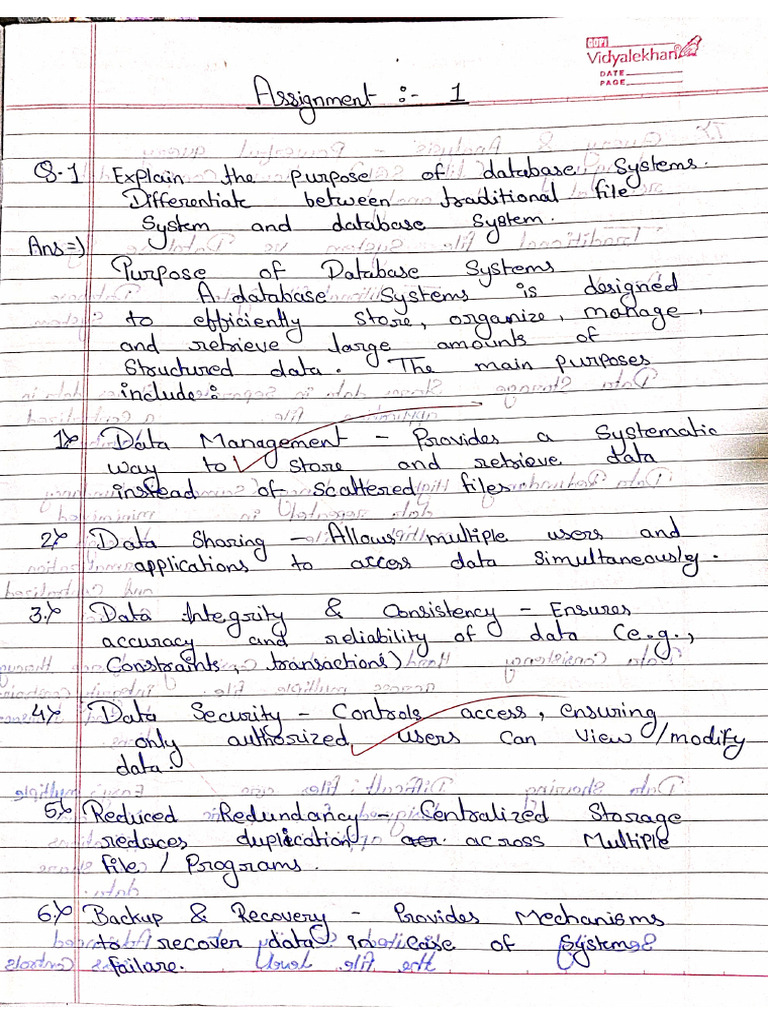 GOPI
Vidyalekhan
DATE
PAGE
Assignment :- 1
Q-1 Explain the purpose of database Systems.
Differentiate between traditional file
System and database System.
Ans=)
Purpose of Database Systems
A database Systems is designed
to efficiently store, organize, manage,
and retrieve large amounts of
Structured data. The main purposes
include:
1) Data Management - Provides a Systematic
way to store and retrieve data
instead of scattered files
2) Data Sharing - Allows multiple users and
applications to access data simultaneously.
3.) Data Integrity & Consistency - Ensures
accuracy and reliability of data (e.g.,
Constraints, transactions)
4) Data Security - Controls access, ensuring
only authorized users can view/modify
data.
5) Reduced Redundancy - Centralized Storage
redaces duplication across Multiple
file / Programs.
6) Backup & Recovery - Provides Mechanisms
to recover data in case of System
failare.